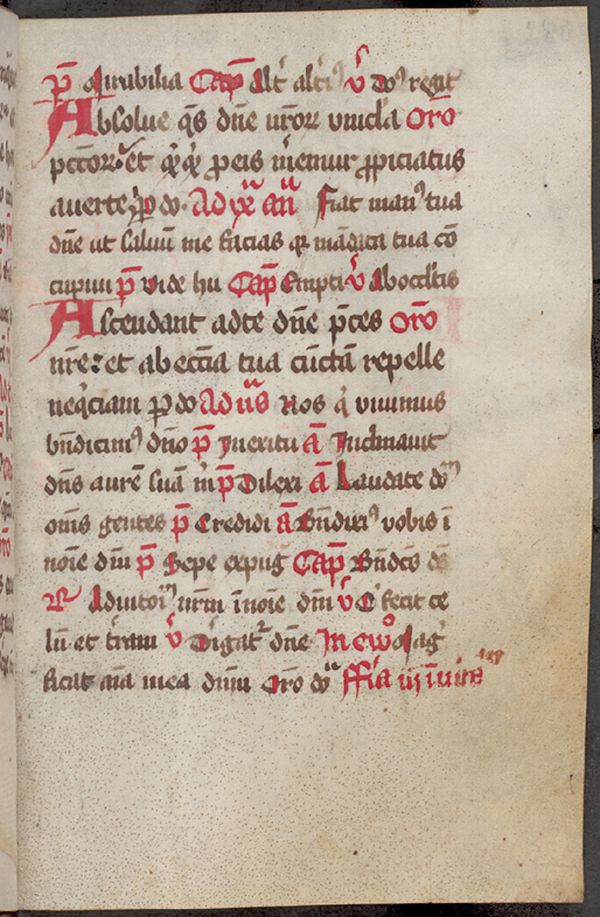 p̄ Mirabilia Cap̄ Alt̄ alt̄iꝰ v̄ dn̄s regit
Absolue q̄s dn̄e n̄roꝝ vincl̄a Oro
pctoꝝ. et q̄cq̄d p eis mēmur ꝓpiciatus
auerte p do. Ad ix añ Fiat manꝰ tua
dn̄e ut saluū me facias q̄ mādata tua cō
cupiui p̄ vide hu Cap̄ Empti v̄ Ab occl̄tis
Ascendant ad te dn̄e p̄ces Oro
nr̄e: et ab eccīa tua cūctā repelle
neq̄ciam p do Ad us Nos q̄ viuimus
bn̄dicimꝰ dn̄o p̄ yn exitu ā Inclinauit
dn̄s aurē suā m̄ p̄ Dilexi ā Laudate dn̄m
om̄s gentes p̄ Credidi ā Bn̄dixiꝰ vobis ī
noīe dn̄i p̄ Sepe expug Cap̄ Bn̄dcs ds
R Adiutoīm nr̄m ī noīe dn̄i v̄ Q fecit ce
lū et t̄ram v̄ Dīgat dn̄e In ewo Mag
ficat aīa mea dn̄m Oro do Fr̄ia iij īuit